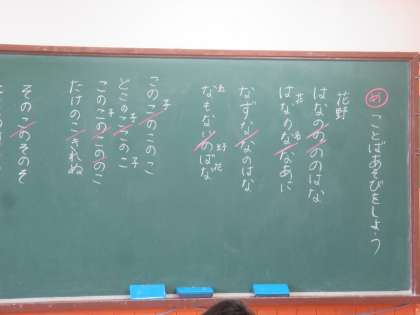 め ことばあそびをしよう
花野
はなのののののはな
花 名
はなのななあに
なずななのはな
名 野花
なもないのばな
子
このこのこのこ
子 子
どこのこのこのこ
このこのこののこ
たけのこきれぬ
そのこのそのそ